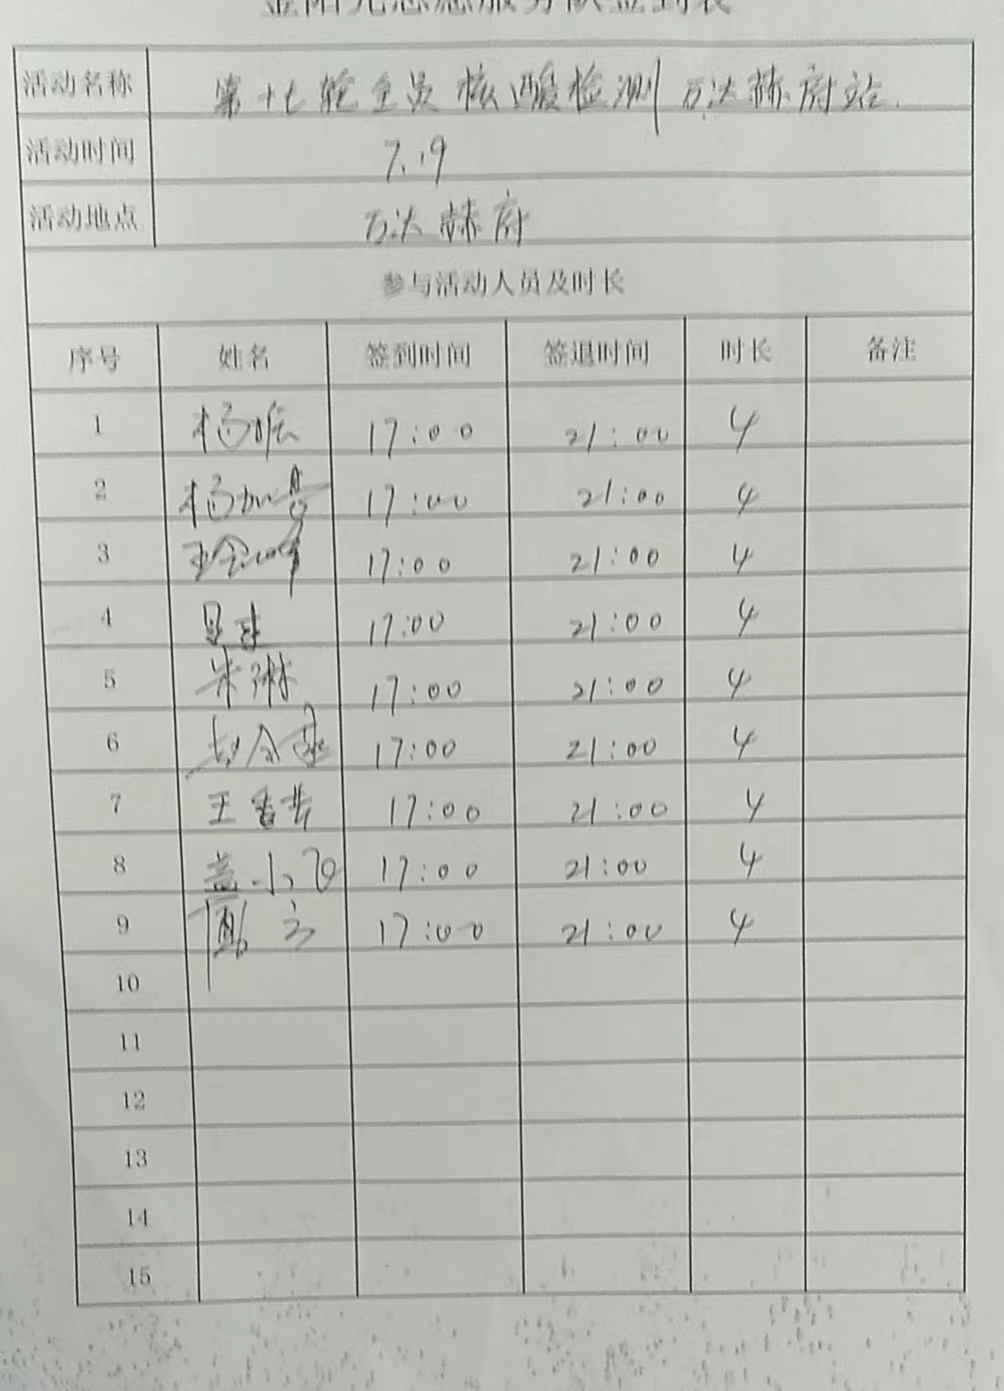 金阳光志愿服务队签到表
活动名称 第十七轮全员核酸检测万达赫府站
活动时间 7.19
活动地点 万达赫府
参与活动人员及时长
序号 姓名 签到时间 签退时间 时长 备注
1 17:00 21:00 4
2 17:00 21:00 4
3 17:00 21:00 4
4 17:00 21:00 4
5 朱琳 17:00 21:00 4
6 17:00 21:00 4
7 王香芸 17:00 21:00 4
8 盖小飞 17:00 21:00 4
9 17:00 21:00 4
10
11
12
13
14
15